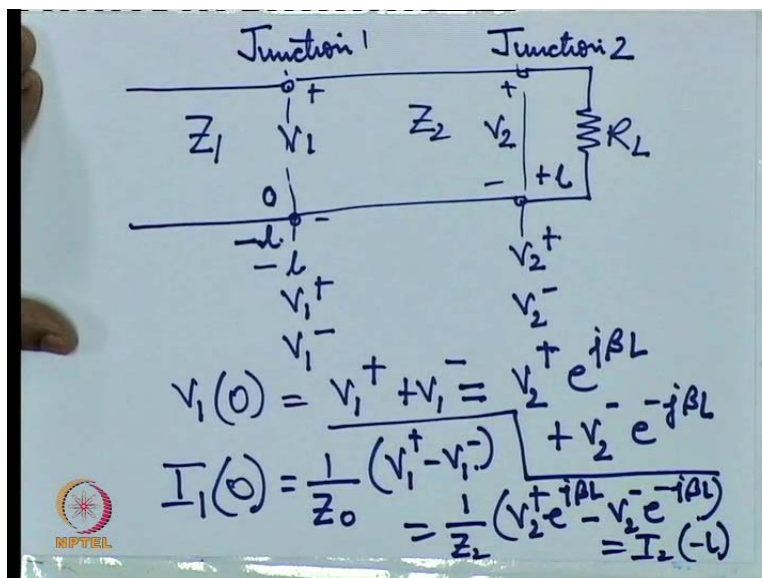 Junction 1 Junction 2
+ +
Z₁ V₁ Z₂ V₂ R_L
0 - - +l
-l
-l
V₁⁺ V₂⁺
V₁⁻ V₂⁻
V₁(0) = V₁⁺ + V₁⁻ = V₂⁺ e^{jβL}
+ V₂⁻ e^{-jβL}
I₁(0) = 1/Z₀ (V₁⁺ - V₁⁻)
= 1/Z₂ (V₂⁺ e^{jβL} - V₂⁻ e^{-jβL})
= I₂(-l)
NPTEL